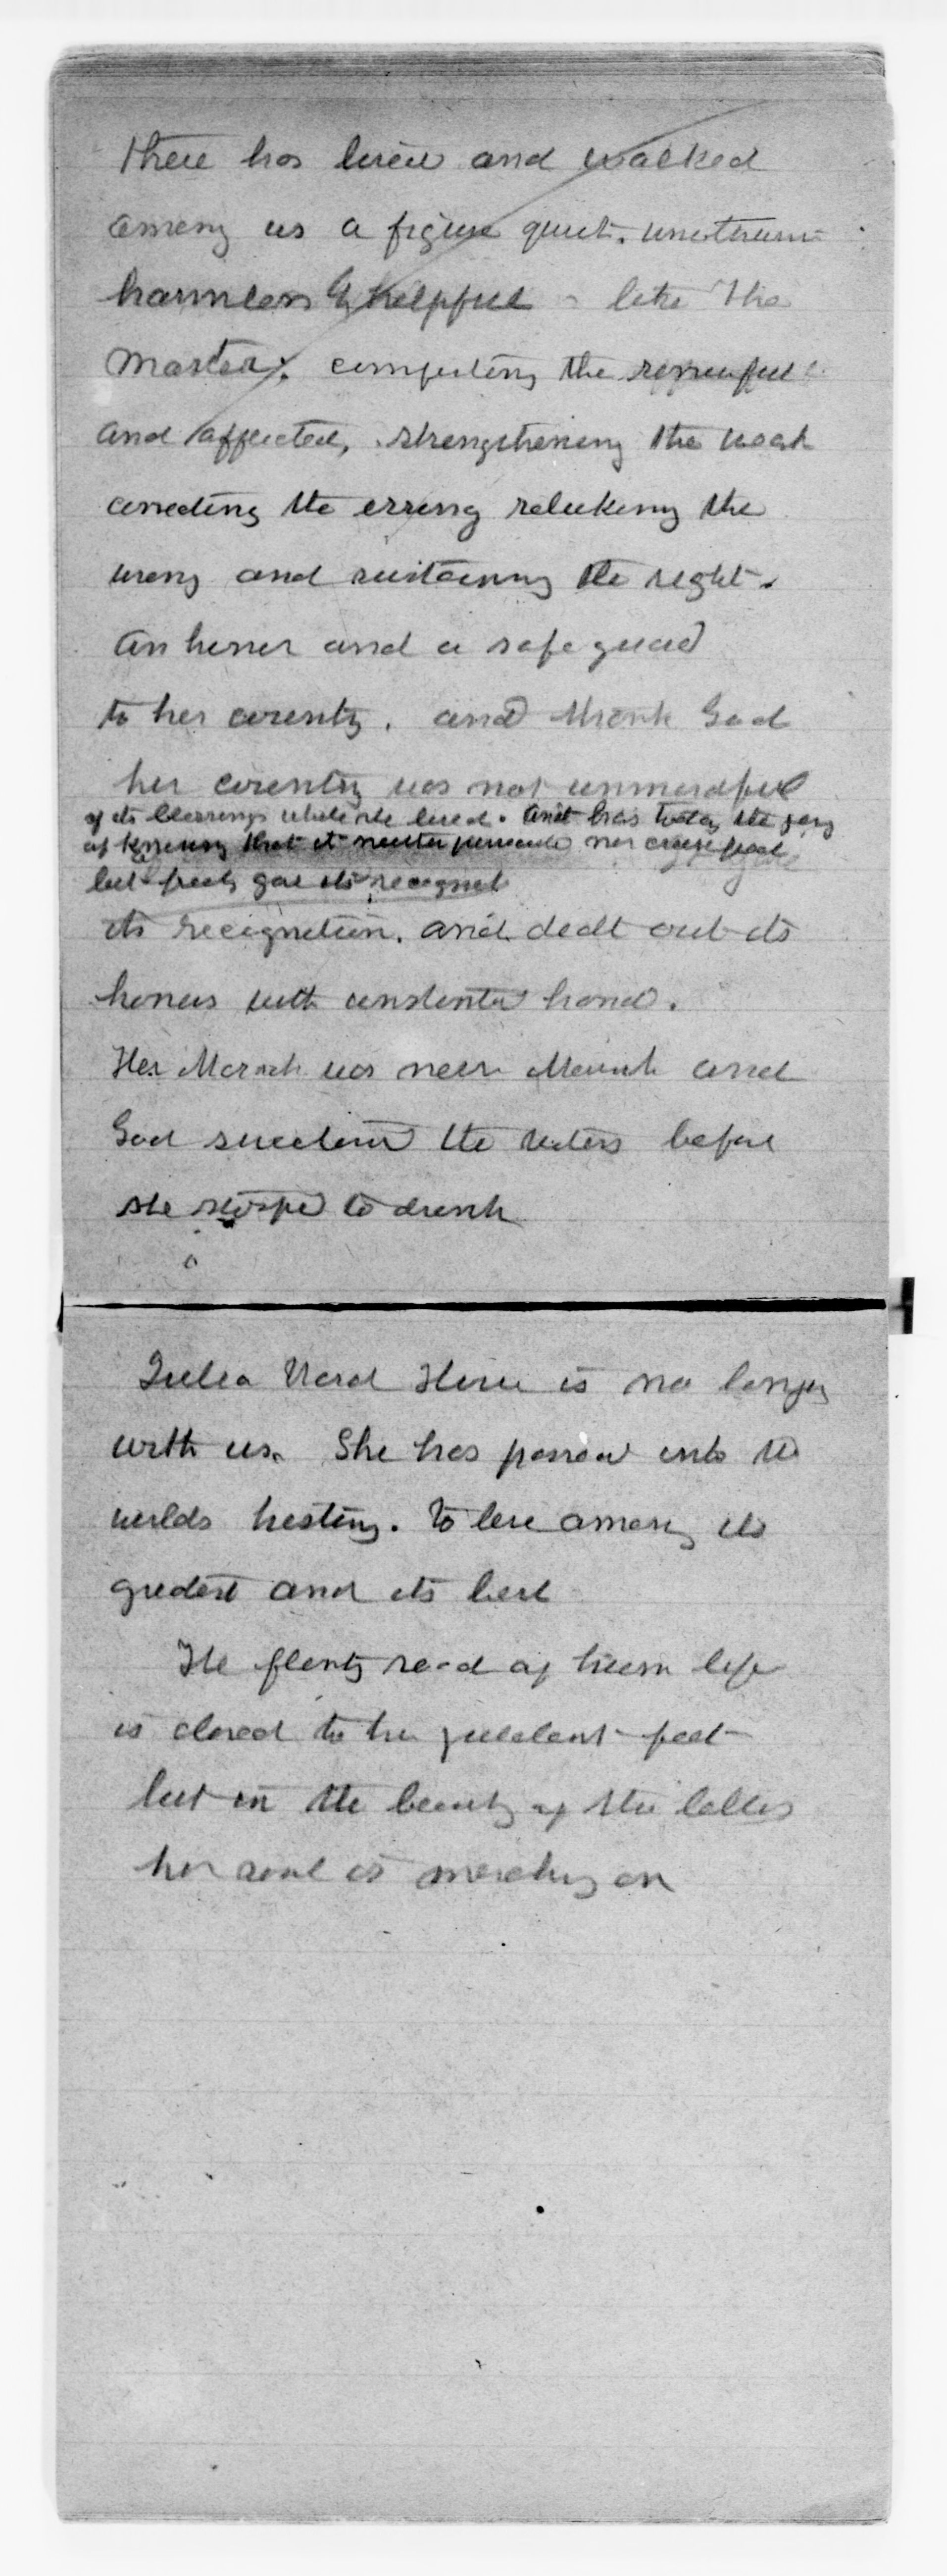 There has lived and walked
among us a figure quiet,
harmless & helpful - like the
Master, comforting the
and afflicted, strengthening the weak
correcting the erring rebuking the
wrong and sustaining the right.
An honor and a safe guard
to her country. and thank God
her country was not unmindful
of its blessings while she lived. And has today the joy
of knowing that it neither persecuted nor crucified
but freely gave its recognit
its recognition. and dealt out its
honors with hand.
Her Marah was never Marah and
God sweetened the waters before
she stooped to drink
Julia Ward Howe is no longer
with us. She has passed into the
worlds history. To live among its
greatest and its best
The flinty road of human life
is closed to her feet
but in the beauty of the lillies
her soul is marching on